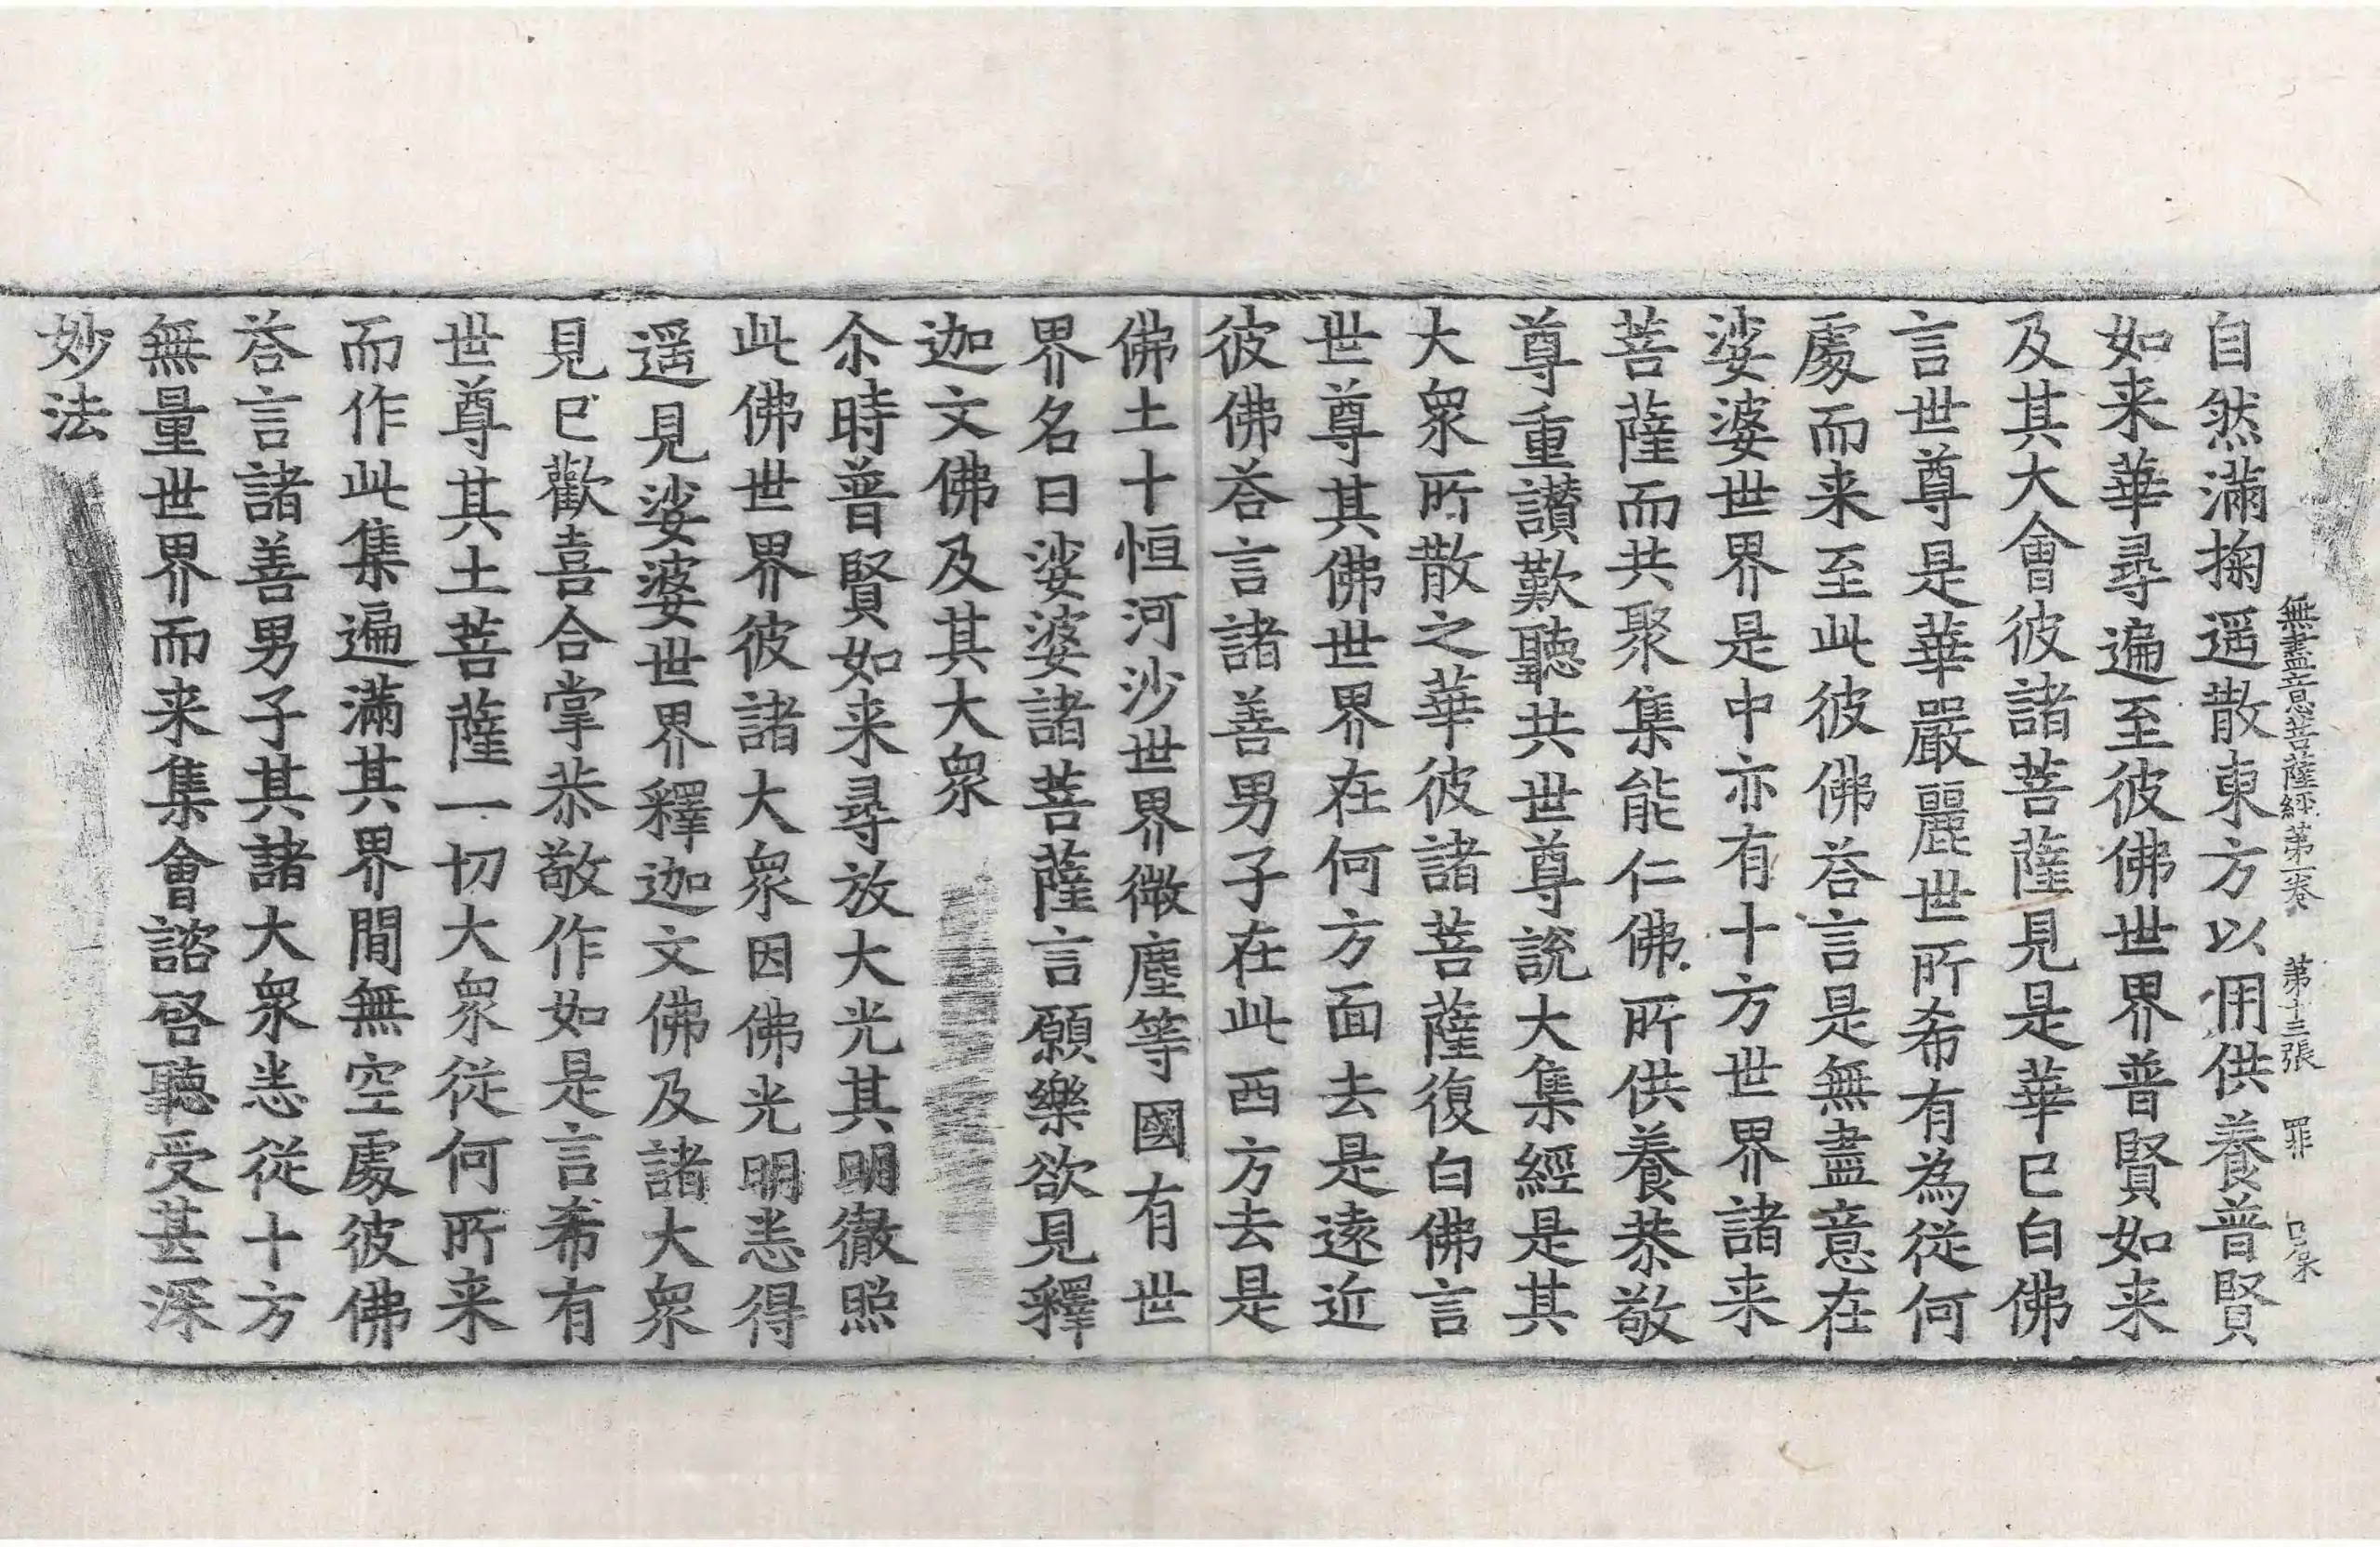 無盡意菩薩經第一卷 第十三張 罪
自然滿掬遥散東方以用供養普賢
如来華尋遍至彼佛世界普賢如来
及其大會彼諸菩薩見是華已白佛
言世尊是華嚴麗世所希有為從何
處而来至此彼佛荅言是無盡意在
娑婆世界是中亦有十方世界諸来
菩薩而共聚集能仁佛所供養恭敬
尊重讃歎聽共世尊說大集經是其
大衆所散之華彼諸菩薩復白佛言
世尊其佛世界在何方面去是遠近
彼佛荅言諸善男子在此西方去是
佛土十恒河沙世界微塵等國有世
界名曰娑婆諸菩薩言願樂欲見釋
迦文佛及其大衆
尒時普賢如来尋放大光其明徹照
此佛世界彼諸大衆因佛光明悉得
遥見娑婆世界釋迦文佛及諸大衆
見已歡喜合掌恭敬作如是言希有
世尊其土菩薩一切大衆從何所来
而作此集遍滿其界間無空處彼佛
荅言諸善男子其諸大衆悉從十方
無量世界而来集會諮啓聽受甚深
妙法